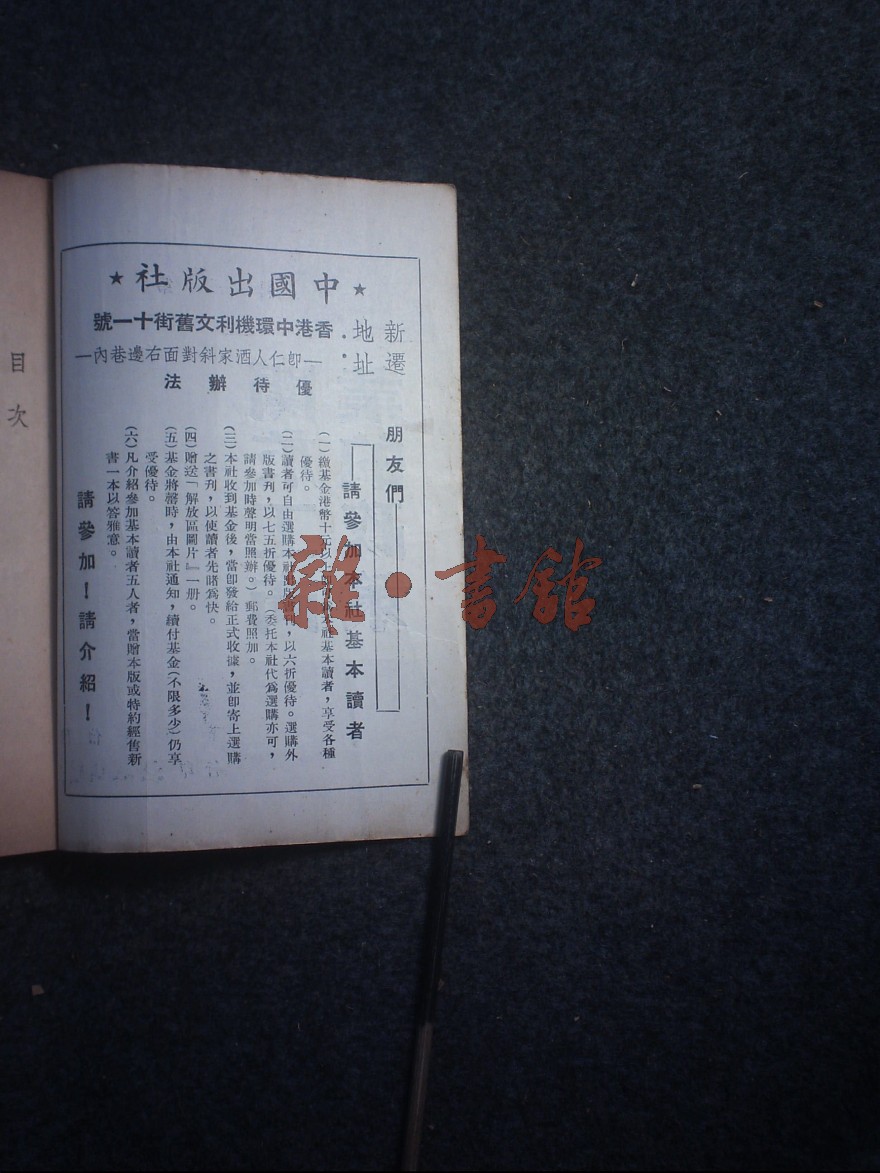 ★中國出版社★
新遷地址:
香港中環機利文舊街十一號
—卽仁人酒家斜對面右邊巷內—
優待辦法
朋友們
請參加本社基本讀者
(一)繳基金港幣十元以上社基本讀者，享受各種
優待。
(二)讀者可自由選購本社出版書刊，以六折優待。選購外
版書刊，以七五折優待。(委托本社代爲選購亦可，
請參加時聲明當照辦。)郵費照加。
(三)本社收到基金後，當卽發給正式收據，並卽寄上選購
之書刊，以使讀者先睹爲快。
(四)贈送「解放區圖片』一册。
(五)基金將罄時，由本社通知，續付基金(不限多少)仍享
受優待。
(六)凡介紹參加基本讀者五人者，當贈本版或特約經售新
書一本以答雅意。
請參加！請介紹！
目次
雜·書館